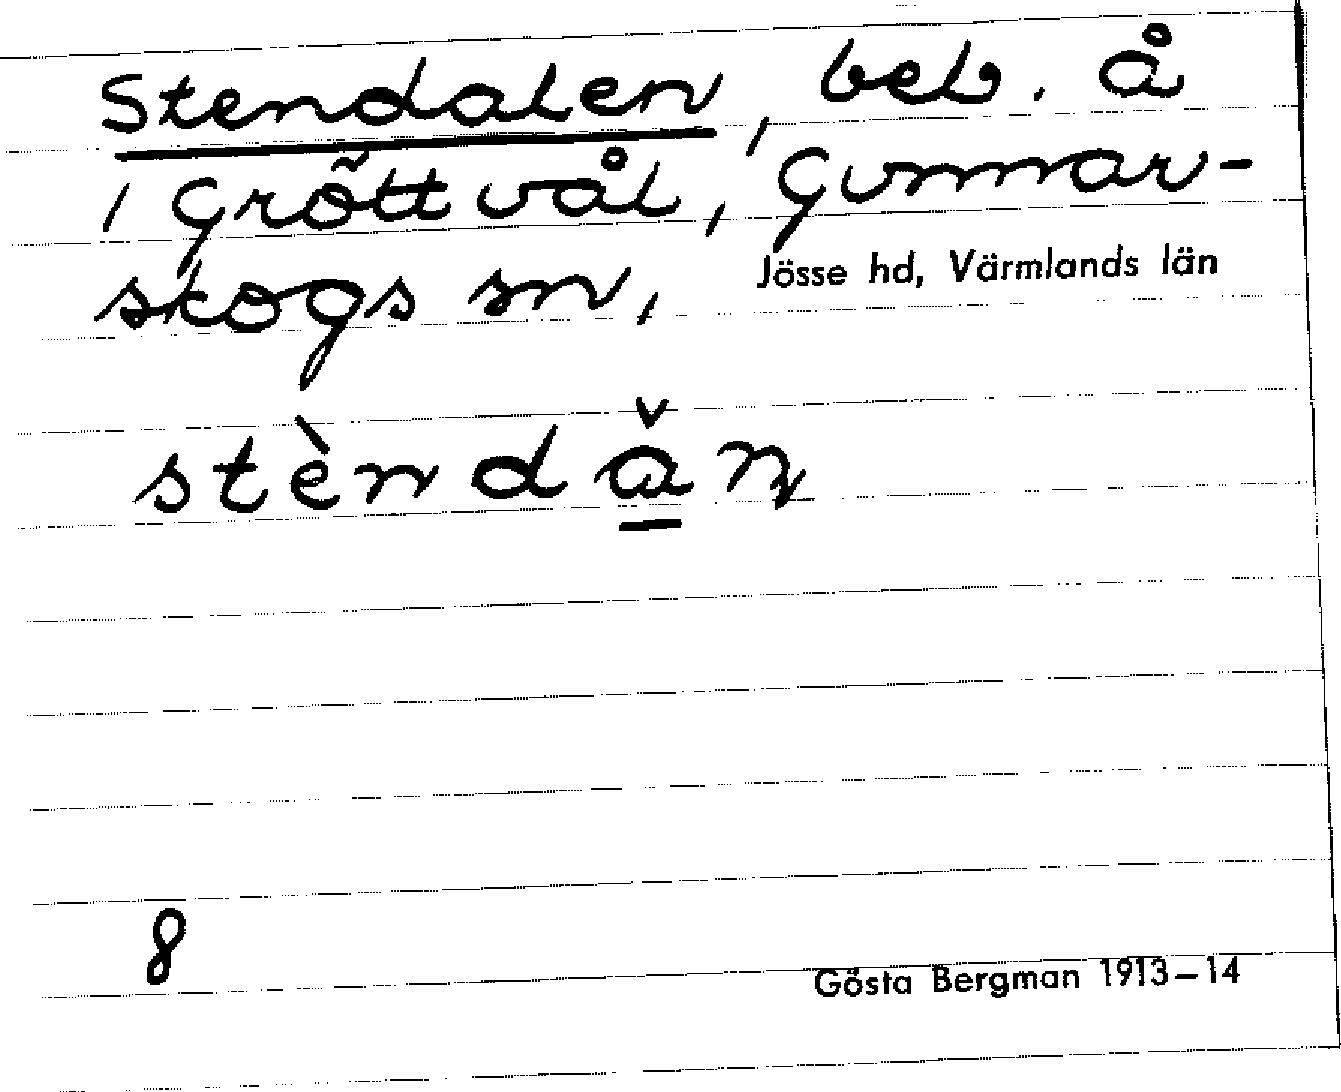 Stendalen, beb. å
i Gröttvål, Gunnar-
skogs sn, Jösse hd, Värmlands län
stèndǎ̱n
8
Gösta Bergman 1913–14